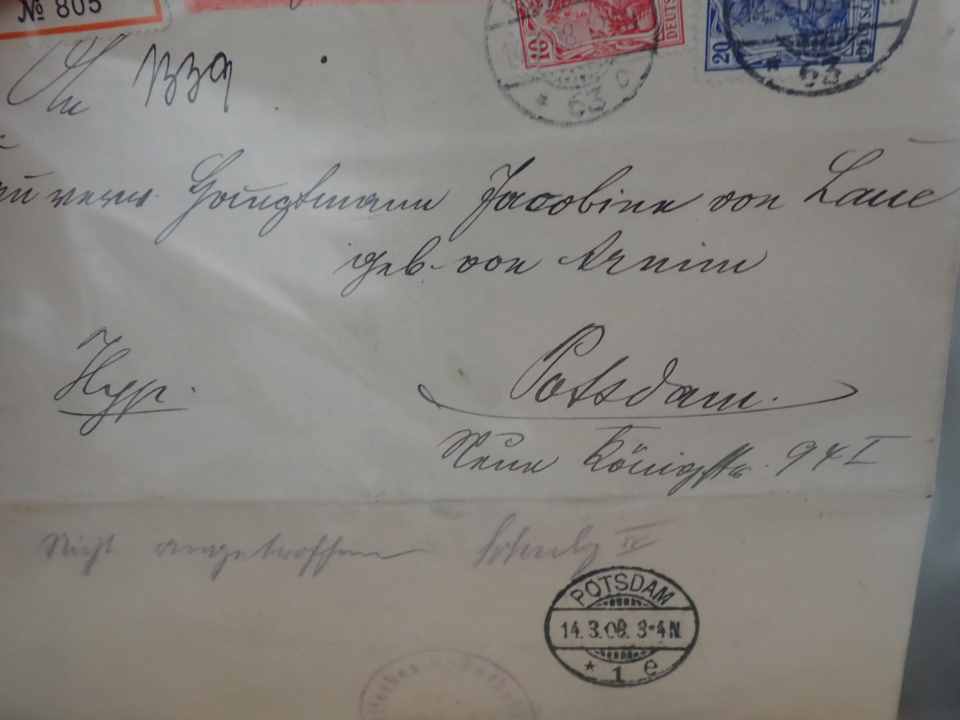 № 805
10 DEUTS
20 DEUTS
* 63 c
* 63
verw. Hauptmann Jacobine von Laue
geb. von Arnim
Hyp.
Potsdam.
Neue Königstr. 94 I
Nicht angetroffen Schulz IV
POTSDAM
14.3.08. 3-4 N.
* 1 e